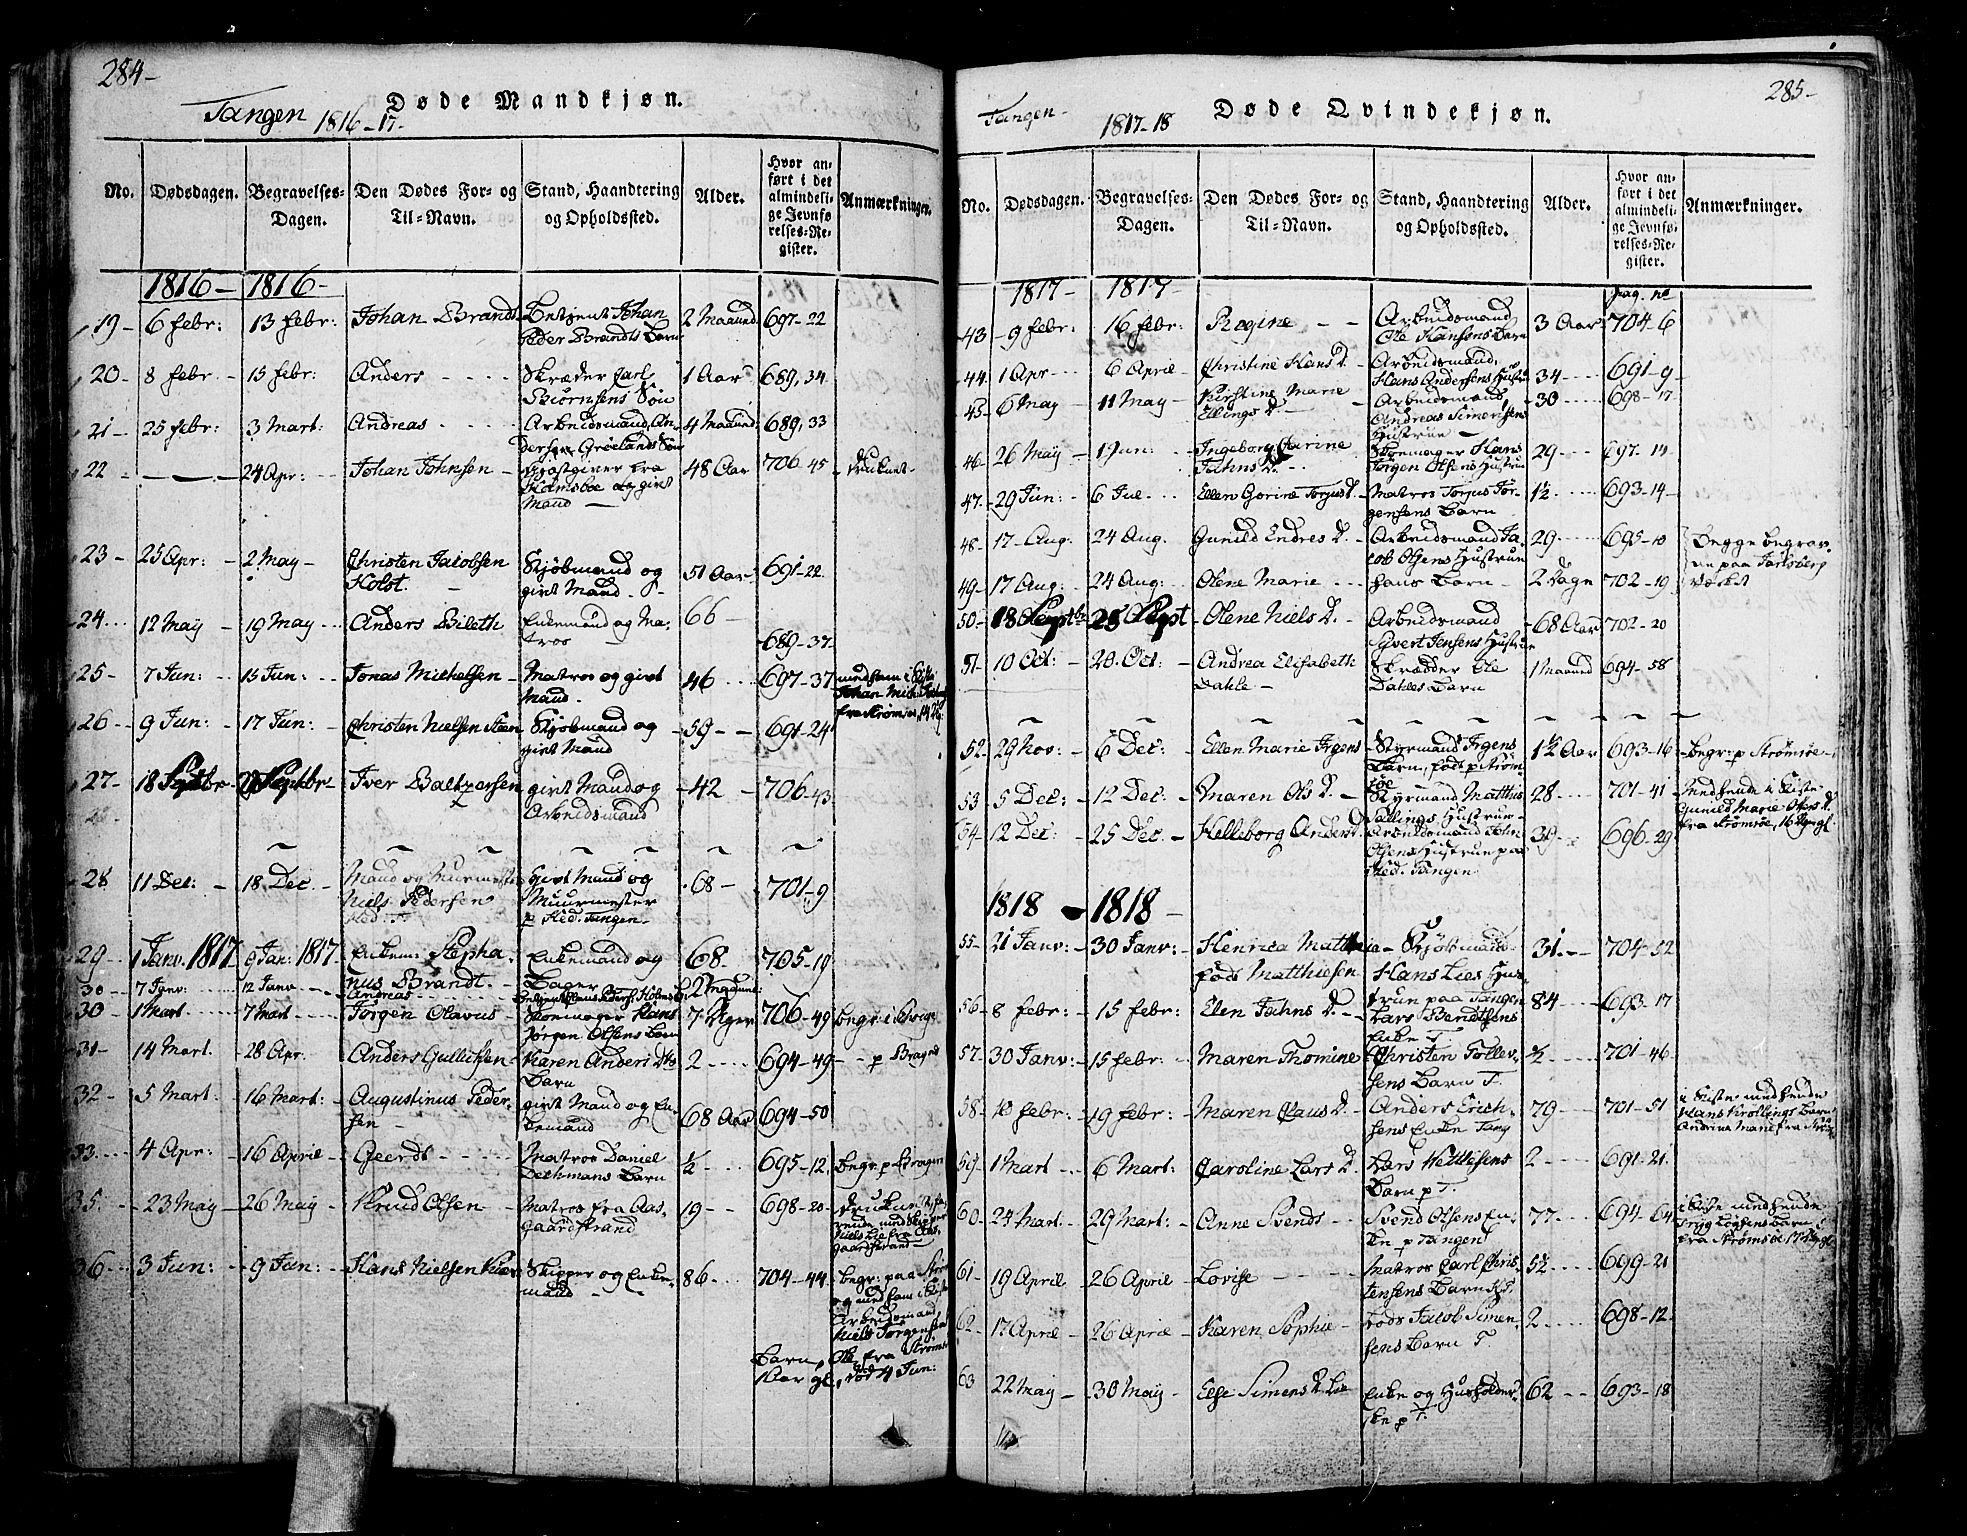 284-
Tangen 1816-17- Døde Mandkjøn.
No. Dødsdagen. Begravelses-Dagen. Den Dødes For- og Til-Navn. Stand, Haandtering og Opholdssted. Alder. Hvor anført i det almindelige Jevnførelses-Register. Anmærkninger.
1816- 1816-
19- 6 febr: 13 febr: Johan Brandt Betjent Johan Peder Brandts Barn 2 Maaned 697-22
20- 8 febr- 15 febr: Anders Skræder Carl Biørnsens Søn 1 Aar 689,34
21- 25 febr: 3 Mart: Andreas Arbeidsmand Andersen Grølands Søn 4 Maaned 689,33
22 - 24 Apr: Johan Johnsen giæstgiver fra Holmsboe og givt Mand 48 Aar 706-45 druknet
23- 25 Apr: 2 May Christen Jacobsen Holst. Kjøbmand og givt Mand 51 Aar 691-22
24 12 May 19 May Anders Bileth Enkemand og Matros 66 689-37
25- 7 Jun: 15 Jun: Jonas Michelsen Matros og givt Mand 46 697-37 med ham i Kiste Johan Mich: fra Strømsøe
26 9 Jun: 17 Jun: Christen Nielsen Steen Kjøbmand og givt Mand 59 691-24
27- 18 Septbr 28 Septbr- Iver Baltzersen givt Mand og Arbeidsmand 42 706-43
28 11 Dec: 18 Dec. Mand og Murmester Niels Pedersen Givt Mand og Muurmester p Sted. Tangen 68 701-9
29- 1 Janv. 1817 9 Jan: 1817 Enkem: Stephanus Brandt Enkemand og Bager 68. 705-19
30- 7 Janv: 12 Janv Andreas 12 Maaned:
30 1 Mart 7 Mart Jørgen Olavus Skomager Hans Jørgen Olsens Barn 7 Uger 706-49 begr i
31- 14 Mart. 28 Apr. Anders Gullichsen Karen Anders Dtrs Barn 2 694-49 - p Bragnes
32 5 Mart. 16 Mart: Augustinus Pedersen givt Mand og Enkemand 68 Aar 694-50
33 4 Apr: 16 April Geerdt Matros Daniel Dechmans Barn ½ 695-12 begr: p Bragnes
35. 23 May 26 May Knud Olsen Matros fra Aasgaardstrand 19 698-20 Niels Lie fra Aasgaardstrand
36 3 Jun: 9 Jun: Hans Nielsen Kiær Skipper og Enkemand 86 704-44 begr: paa Strømsøe og med ham i Kiste Arbeidsmand Niels Jørgensens Barn, Ole, fra Strømsøe 1 Aar gl., død 4 Jun:
285-
Tangen- 1817-18 Døde Qvindekjøn.
No. Dødsdagen. Begravelses-Dagen. Den Dødes For- og Til-Navn. Stand, Haandtering og Opholdssted. Alder. Hvor anført i det almindelige Jevnførelses-Register. Anmærkninger.
1817- 1817- pag. no
43 9 febr: 16 febr: Regine Arbeidsmand Ole Hansens Barn 3 Aar 704-6
44 1 Apr 6 April Christine Hans D. Arbeidsmand, Hans Andersens Hustru 34 691-9
45- 6 May 11 May Kirstine Marie Ellings D. Arbeidsmand, Andreas Simensens Hustrue 30 698-17
46- 26 May 1 Jun: Ingeborg Carine Jahns D. Skomager Hans Jørgen Olsens Hustrue 29 697-14
47- 29 Jun: 6 Jul Ellen Gorine Torgus D. Matros Torgus Jørgensens Barn 1½ 693-14
48- 17 Aug: 24 Aug. Gunild Endres D. Arbeidsmand Jacob Olsens Hustrue 29 695-10 Begge begraven paa Jarlsberg Værket
49- 17 Aug: 24 Aug: Olene Marie hans Barn 2 Dage 702-19
50- 18 Septbr 25 Sept Olene Niels D. Arbeidsmand Syvert Jensens Hustrue 68 Aar 702-20
51- 10 Oct: 20. Oct: Andrea Elisabeth Dahle Skrædder Ole Dahles Barn 1 Maaned 694-58
52- 29 Nov: 6 Dec: Ellen Marie Irgens Styrmand Irgens Barn, født p Strømsøe 1½ Aar 693-16 Begr: p Strømsøe
53 5 Dec: 12 Dec: Maren Ols D. Styrmand Matthis Sallings Hustrue 28 701-41 Med hende i Kiste Gunild Marie Olsens D. fra Strømsøe, 16 Uger gl:
54- 12 Dec: 25 Dec Helleborg Anders D. Arbeidsmand John Olsens Hustrue paa Sted. Tangen 39 696-29
1818 - 1818-
55- 21 Janv: 30 Janv: Henrica Mathea født Matthiesen Kjøbmand Hans Lies Hustrue paa Tangen 31. 704-52
56- 8 febr: 15 febr: Elen Jahns D. Lars Bendtsens Enke T. 84 693-17
57- 30 Janv: 15 febr: Maren Thomine Christen Tollevsens Barn T. ½ 701-46
58- 10 febr: 19 febr: Maren Claus D. Anders Erichsens Enke Tang 79 701-51 i Kiste med hende Hans Krollings Barn Andrina Marie fra Strøm
59- 1 Mart 6 Mart: Caroline Lars D. Lars Kettilsens Barn p T. 2 691-21
60- 24 Mart. 29 Mart: Anne Svends Svend Olsens Enke p Tangen 77 694-64 i Kiste med hende Barn fra Strømsøe
61- 19 April 26 April Lovise Matros Carl Christensens Barn T. 5½ 699-21
62- 17 April 26 April Karen Sophie Lods Jacob Simensens Barn T. 2 698-12
63 22 May 30 May Else Simens D. Lie Enke og Husholderske p T. 62 693-18